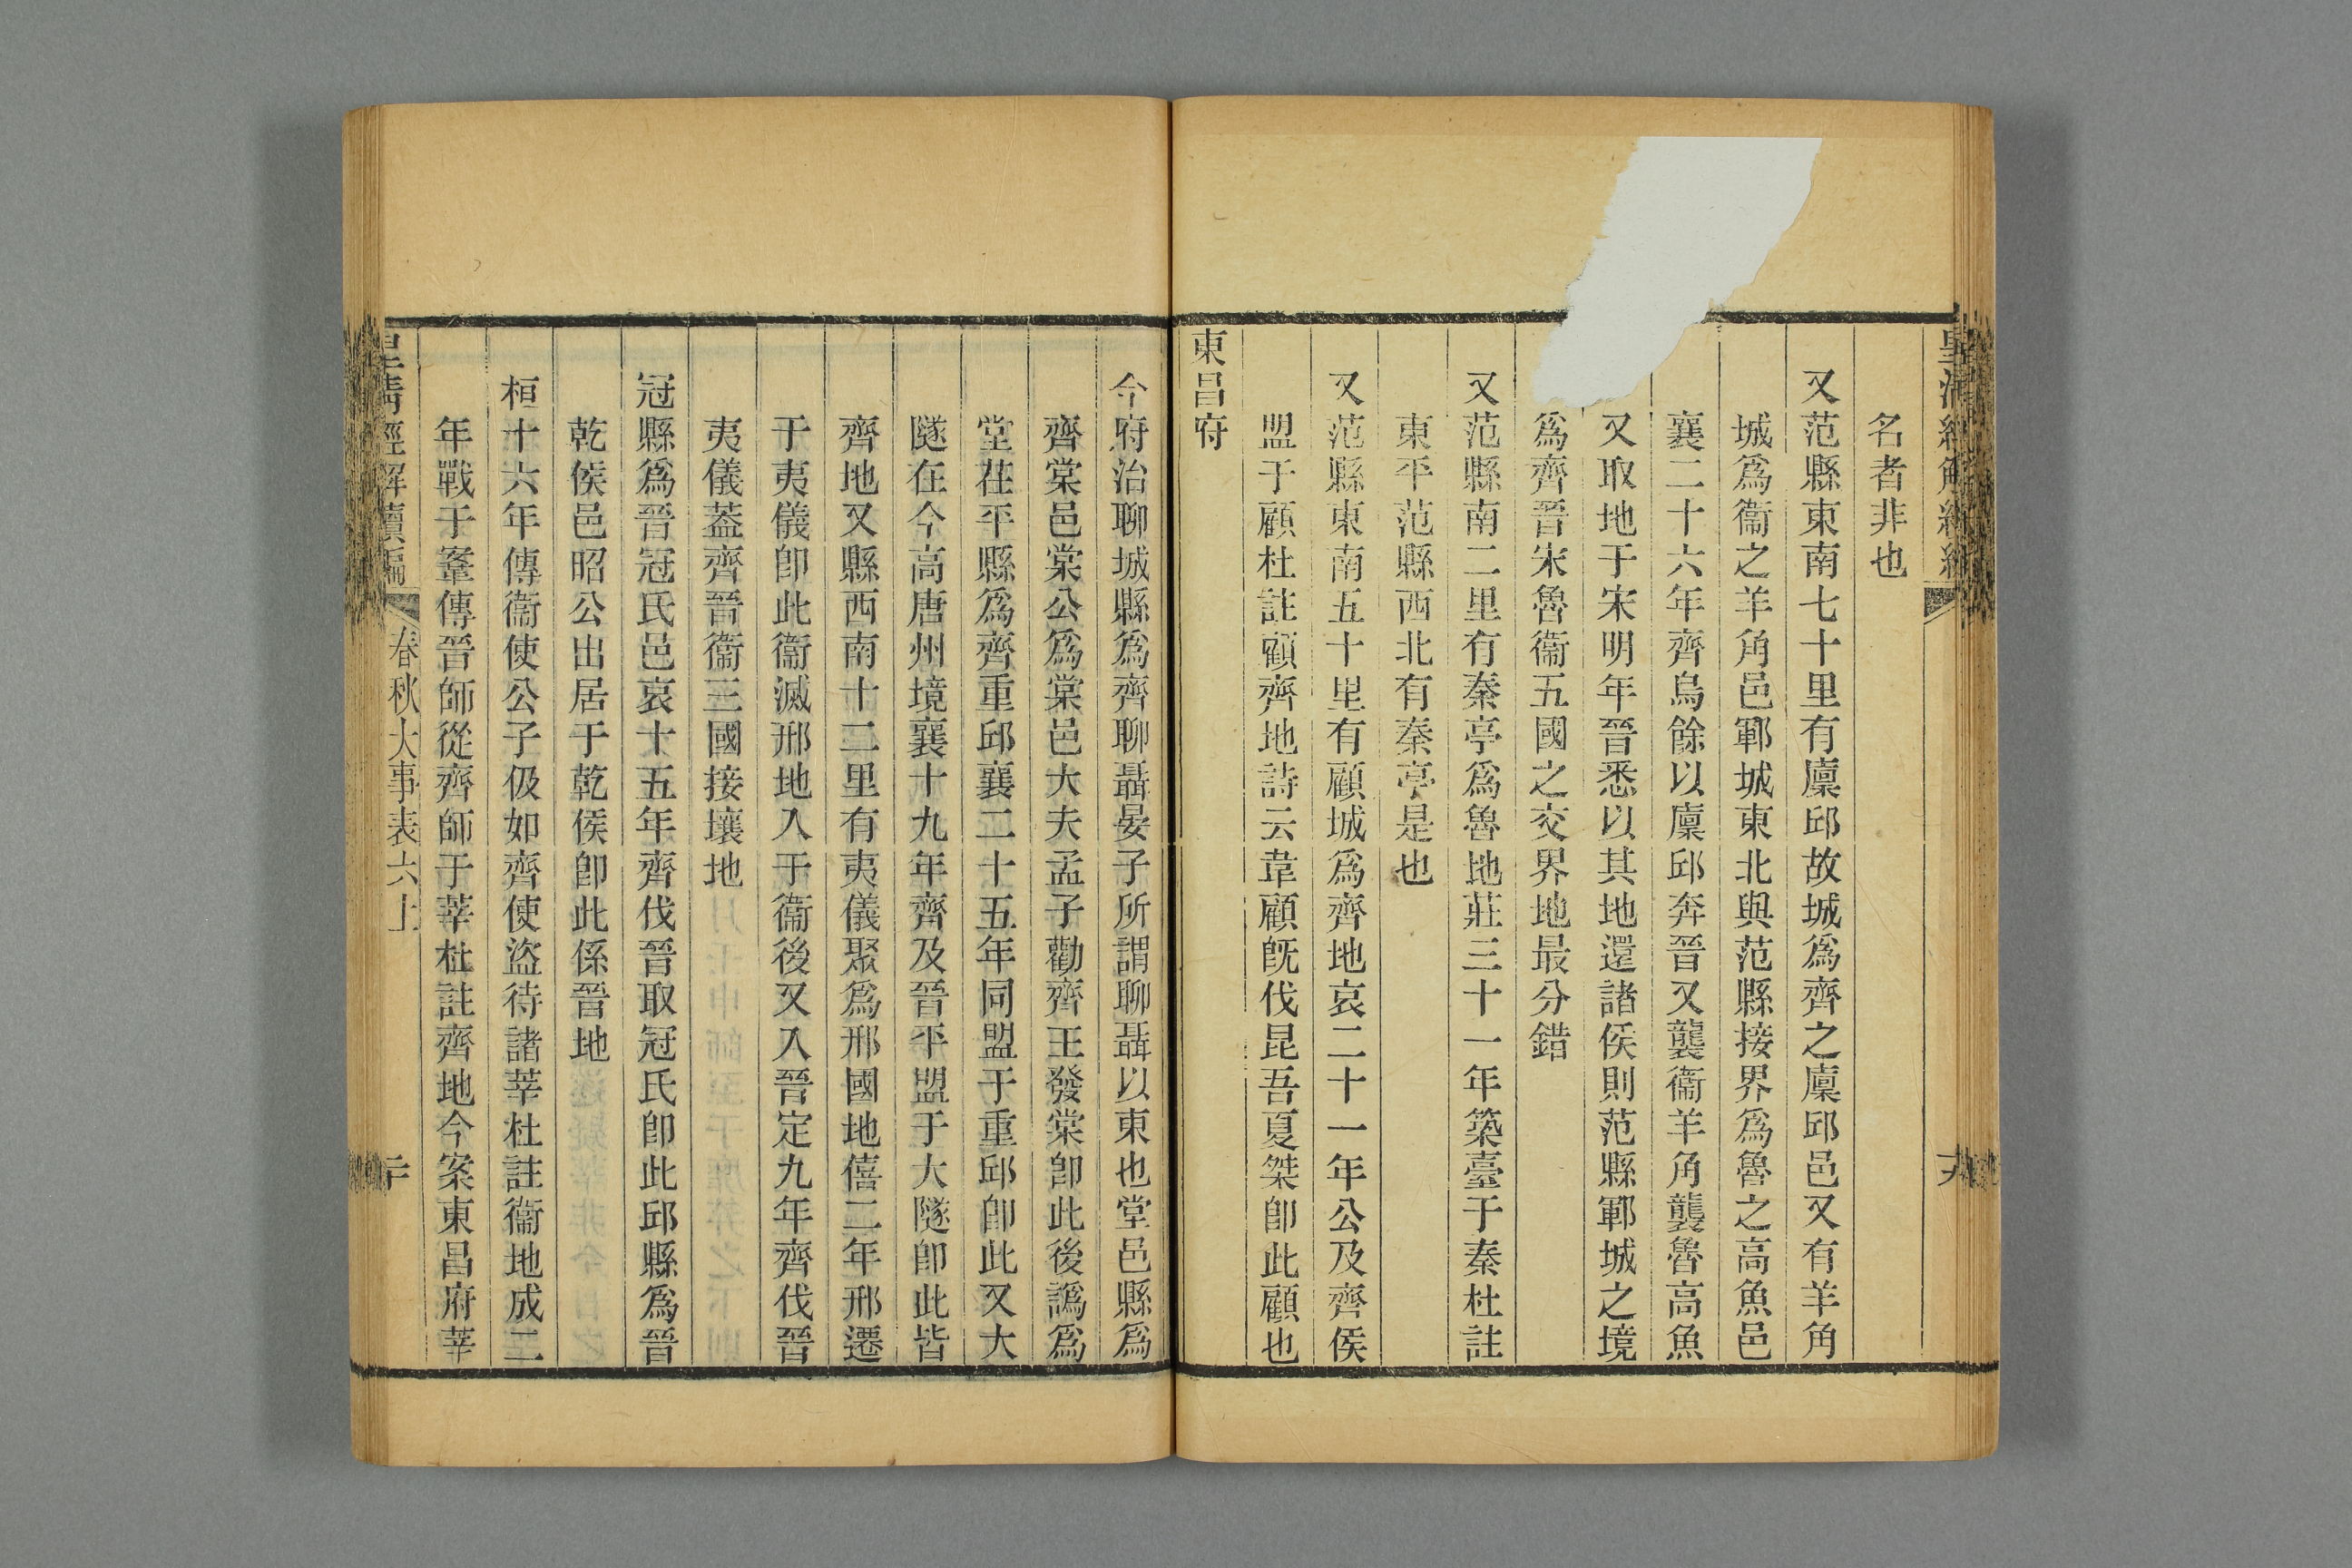 名者非也
又范縣東南七十里有廩邱故城爲齊之廩邱邑又有羊角
城爲衞之羊角邑鄆城東北與范縣接界爲魯之高魚邑
襄二十六年齊烏餘以廩邱奔晉又襲衞羊角襲魯高魚
又取地于宋明年晉悉以其地還諸侯則范縣鄆城之境
爲齊晉宋魯衞五國之交界地最分錯
又范縣南二里有秦亭爲魯地莊三十一年築臺于秦杜註
東平范縣西北有秦亭是也
又范縣東南五十里有顧城爲齊地哀二十一年公及齊侯
盟于顧杜註顧齊地詩云韋顧既伐昆吾夏桀卽此顧也
東昌府
今府治聊城縣爲齊聊聶晏子所謂聊聶以東也堂邑縣爲
齊棠邑棠公爲棠邑大夫孟子勸齊王發棠卽此後譌爲
堂茌平縣爲齊重邱襄二十五年同盟于重邱卽此又大
隧在今高唐州境襄十九年齊及晉平盟于大隧卽此皆
齊地又縣西南十二里有夷儀聚爲邢國地僖二年邢遷
于夷儀卽此衞滅邢地入于衞後又入晉定九年齊伐晉
夷儀葢齊晉衞三國接壤地
冠縣爲晉冠氏邑哀十五年齊伐晉取冠氏卽此邱縣爲晉
乾侯邑昭公出居于乾侯卽此係晉地
桓十六年傳衞使公子伋如齊使盜待諸莘杜註衞地成二
年戰于鞌傳晉師從齊師于莘杜註齊地今案東昌府莘
皇清經解續編
春秋大事表六上